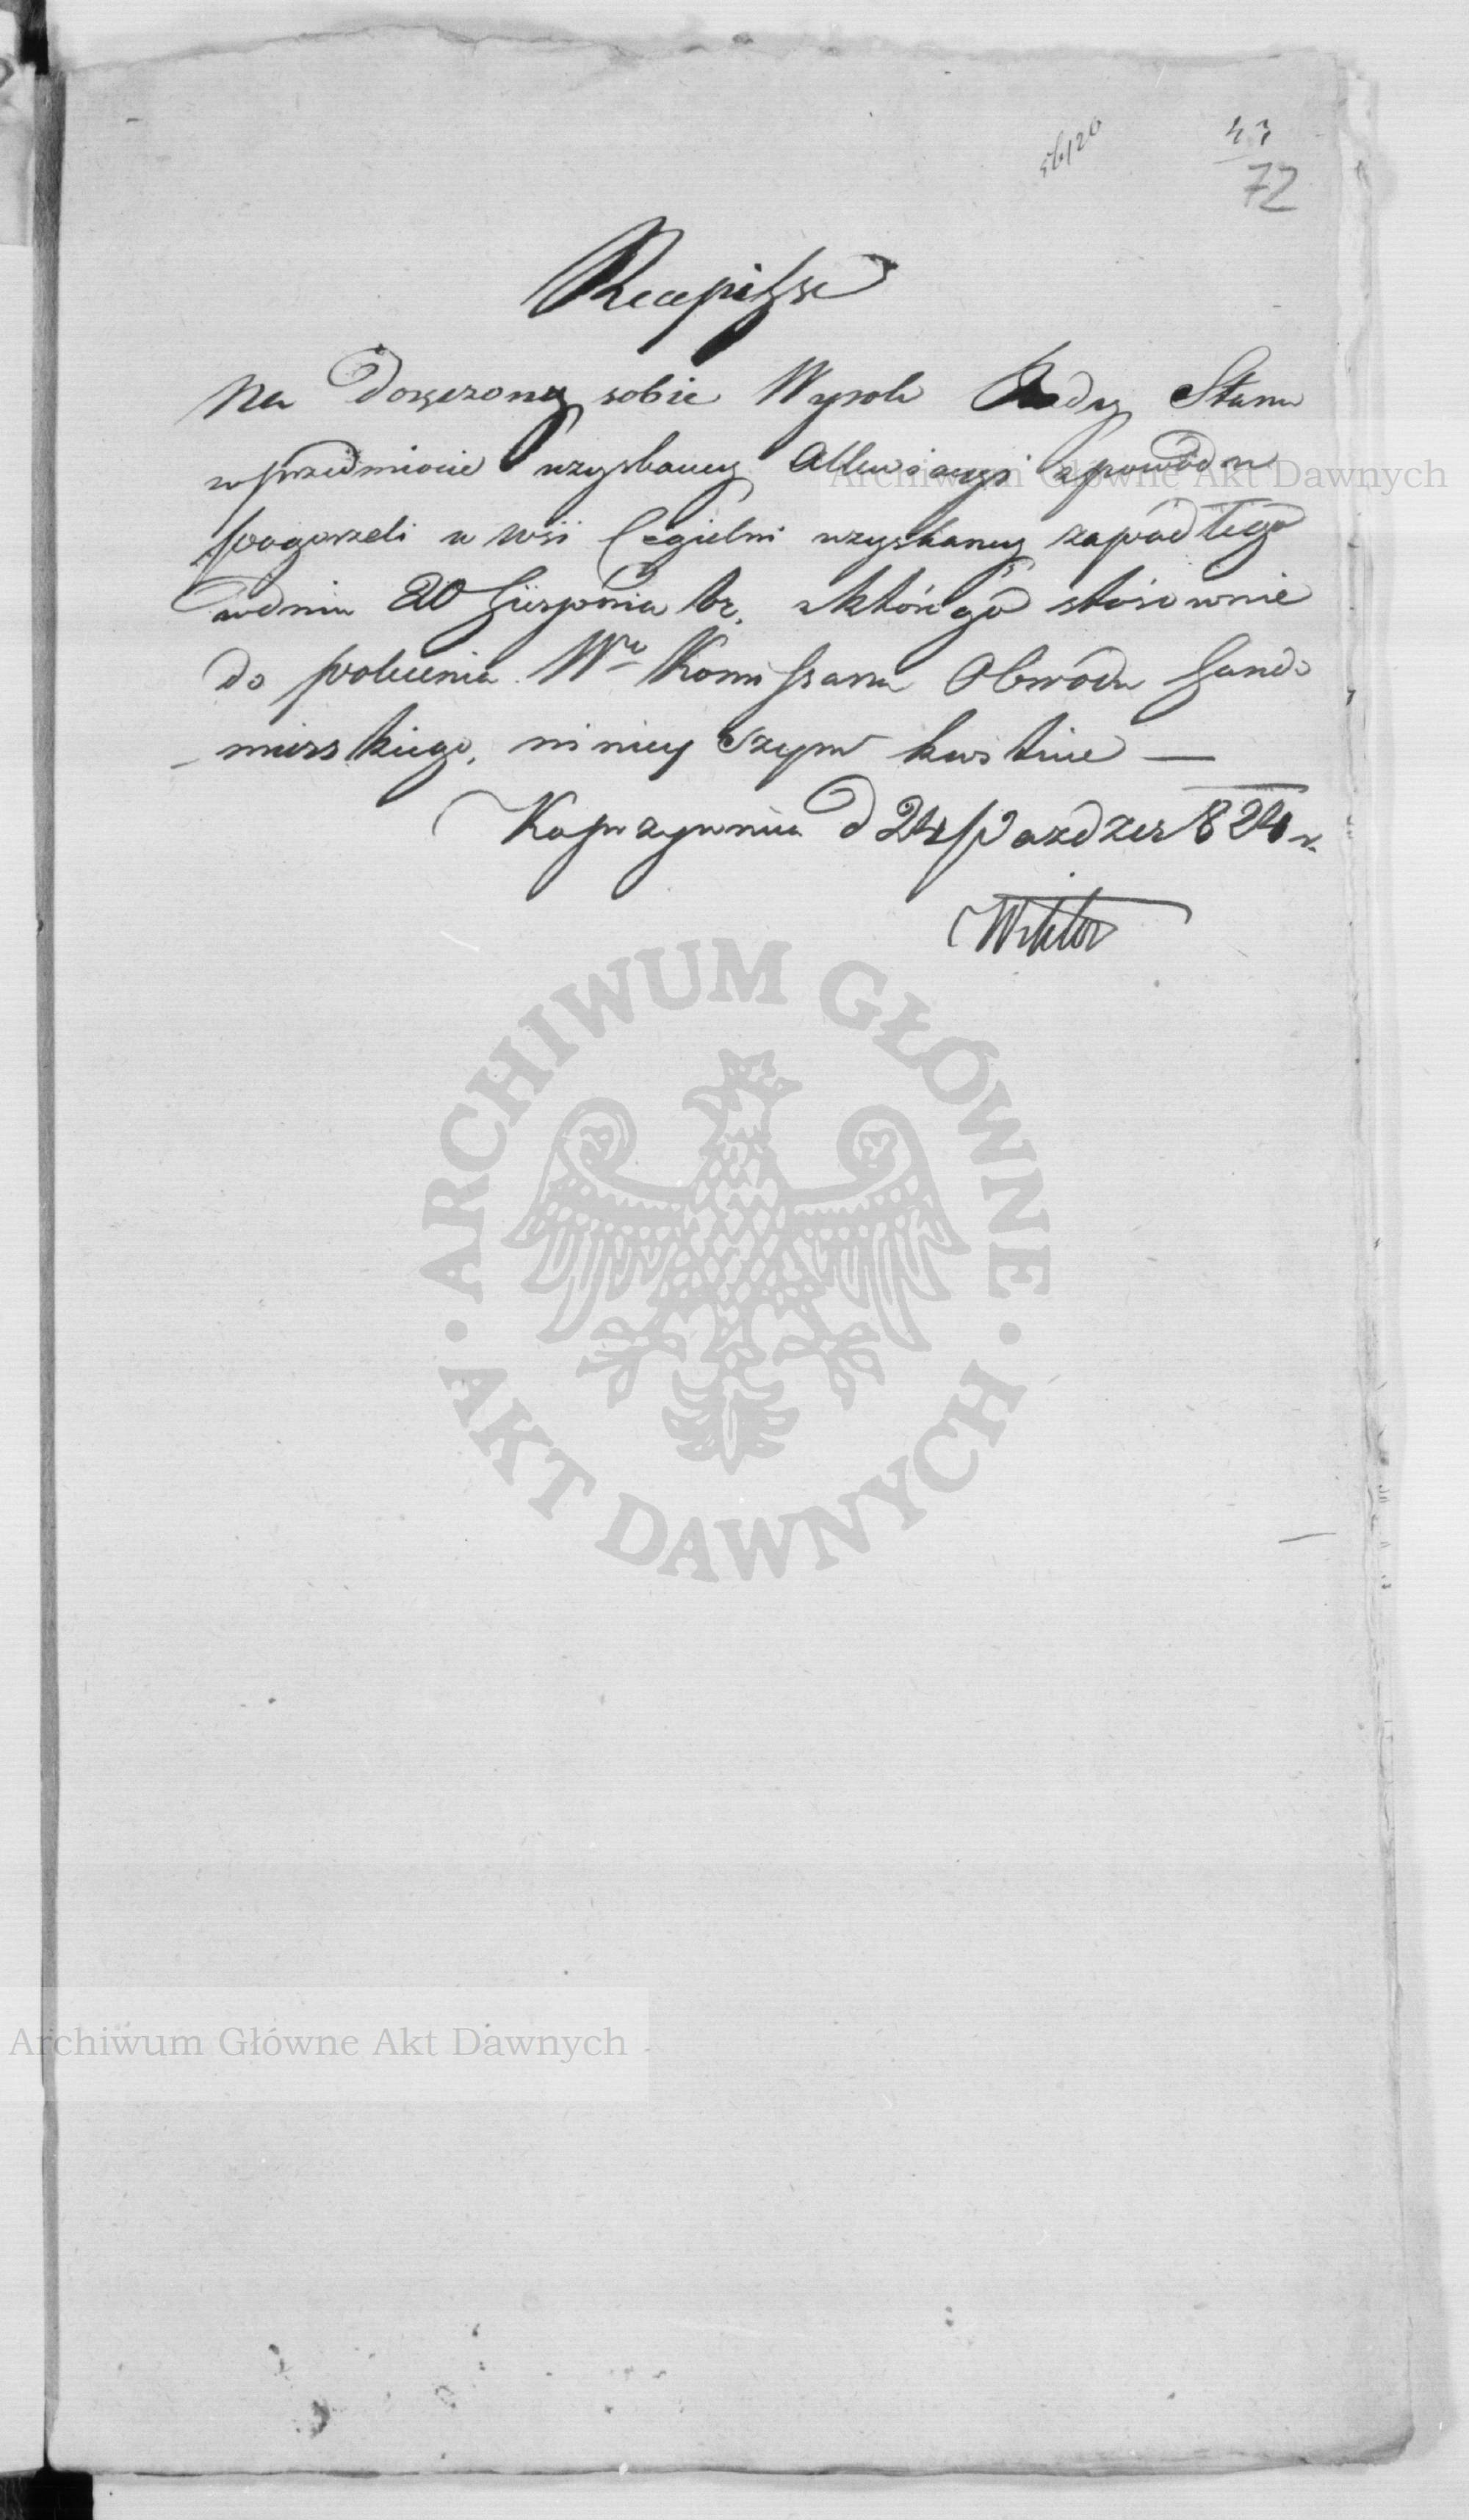 43
72
Recepisse
Na doręczony sobie Wyrok Rady Stanu
w przedmiocie uzyskaney Allewiacyi z powodu
pogorzeli w wsi Cegielni uzyskaney zapadłego
w dniu 20 Sierpnia br. z którego stósownie
do polecenia Wo Kommissarza Obwodu Sando
mierskiego, ninieyszym kwituie —
Koprzywnica d 24 Pazdzier 824 r.
Wiktor
ARCHIWUM GŁÓWNE AKT DAWNYCH
Archiwum Główne Akt Dawnych
Archiwum Główne Akt Dawnych